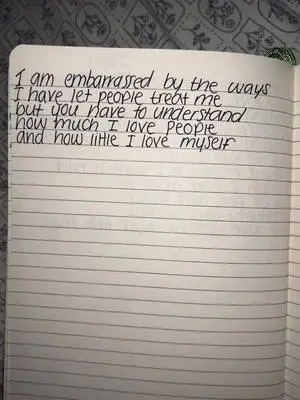 I am embarrassed by the ways
I have let people treat me
but you have to understand
how much I love people
and how little I love myself